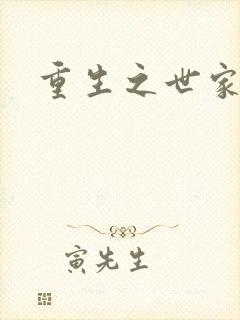 重生之世家
寅先生